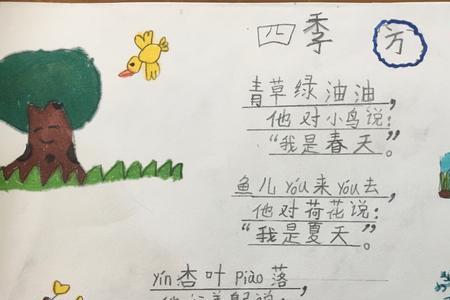 四季 方
青草绿油油，
他对小鸟说：
“我是春天”。
鱼儿yóu来yóu去，
他对荷花说：
“我是夏天”。
yín杏叶piāo落，